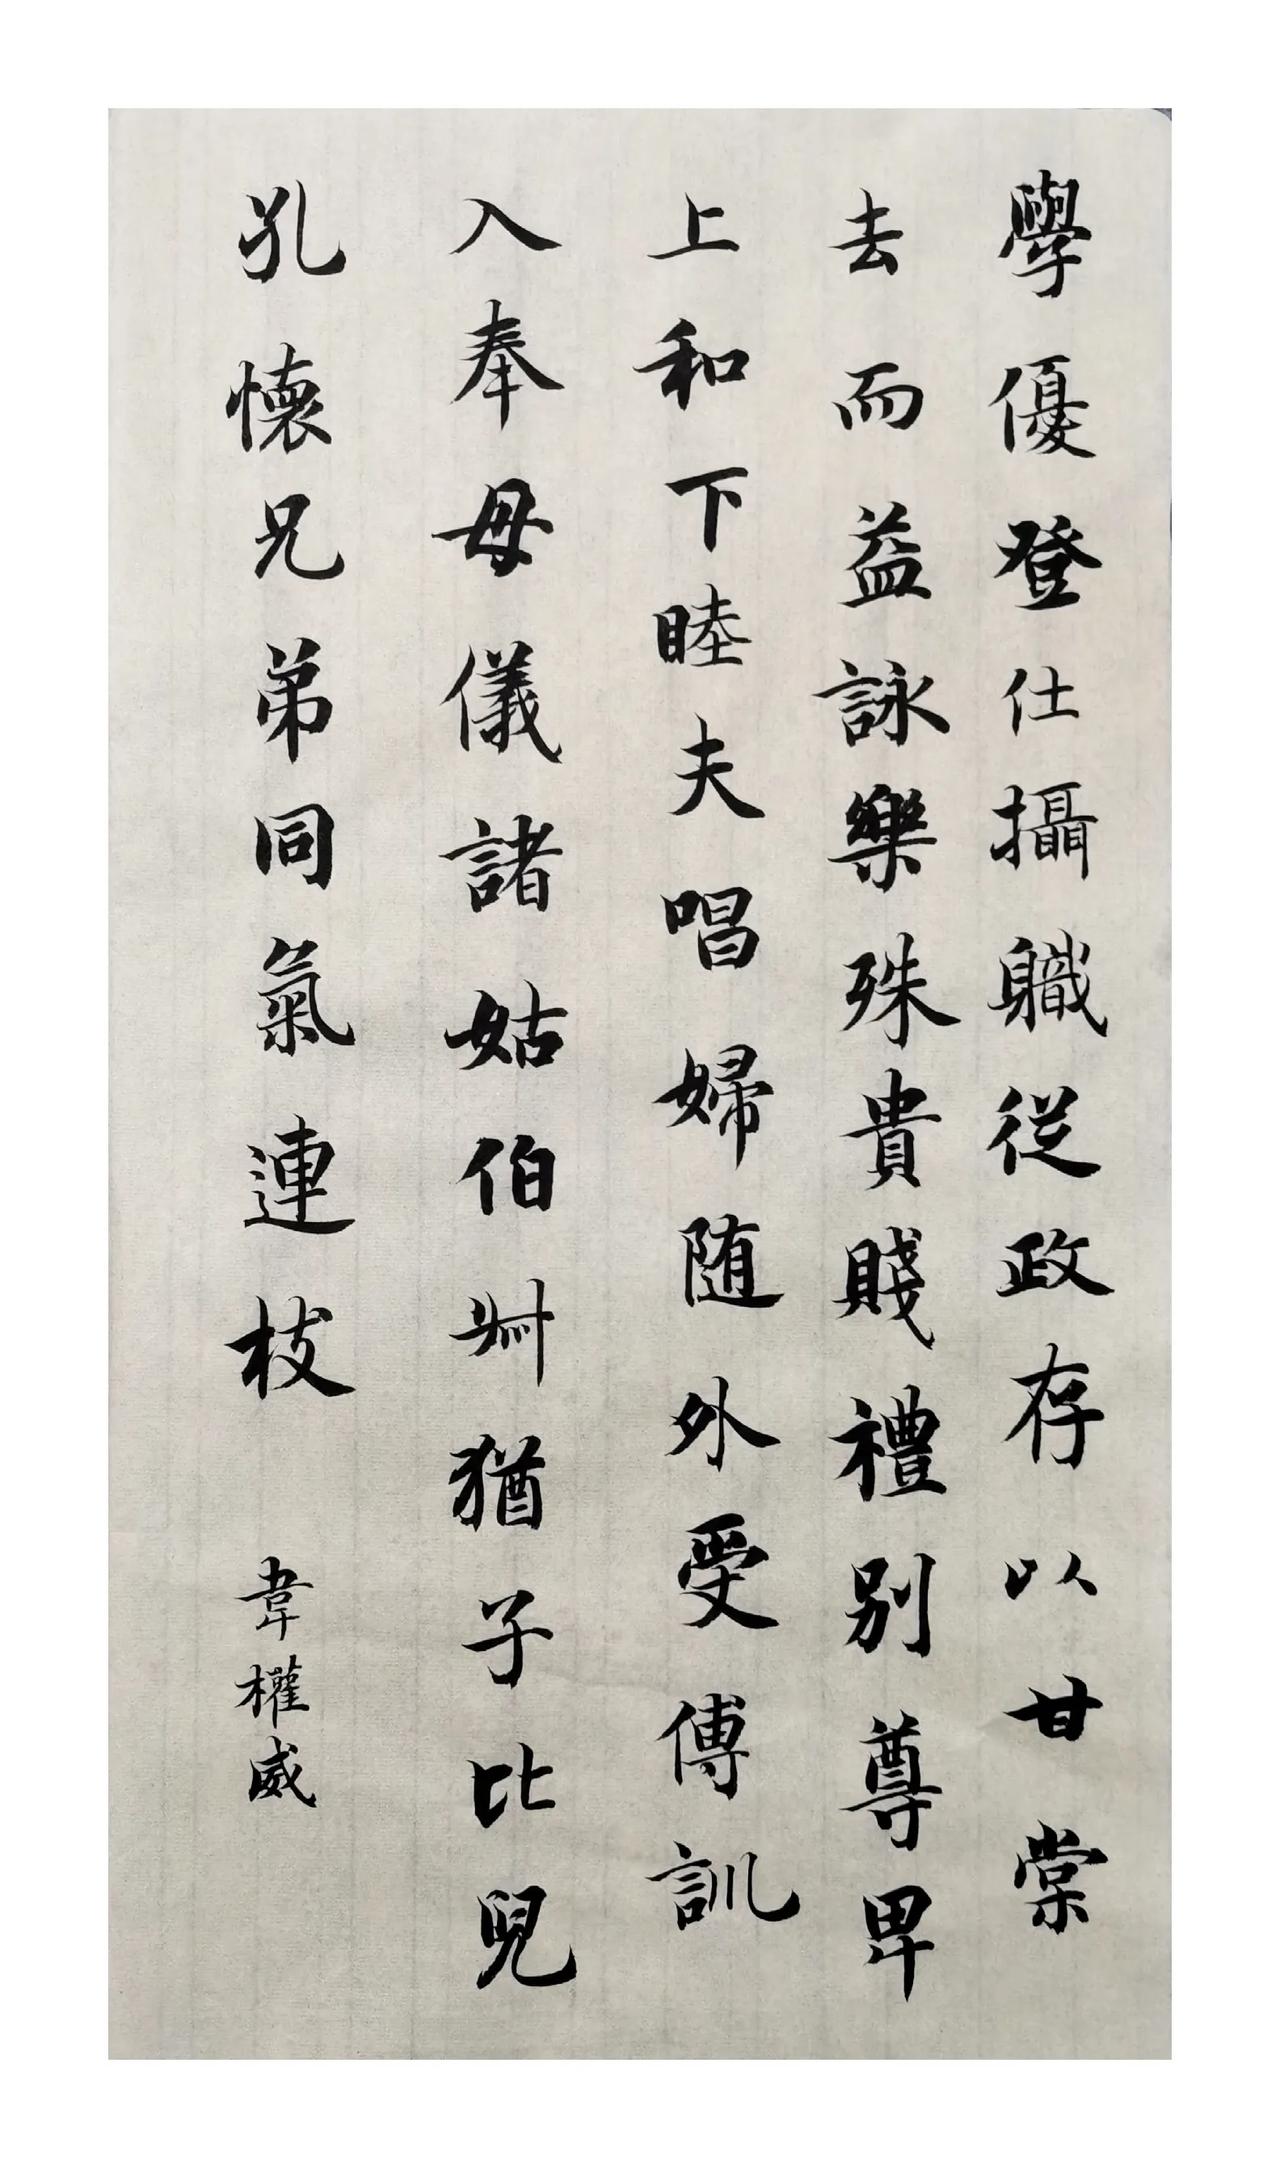 學優登仕攝職從政存以甘棠
去而益詠樂殊貴賤禮別尊卑
上和下睦夫唱婦随外受傅訓
入奉母儀諸姑伯叔猶子比兒
孔懷兄弟同氣連枝
韋權威